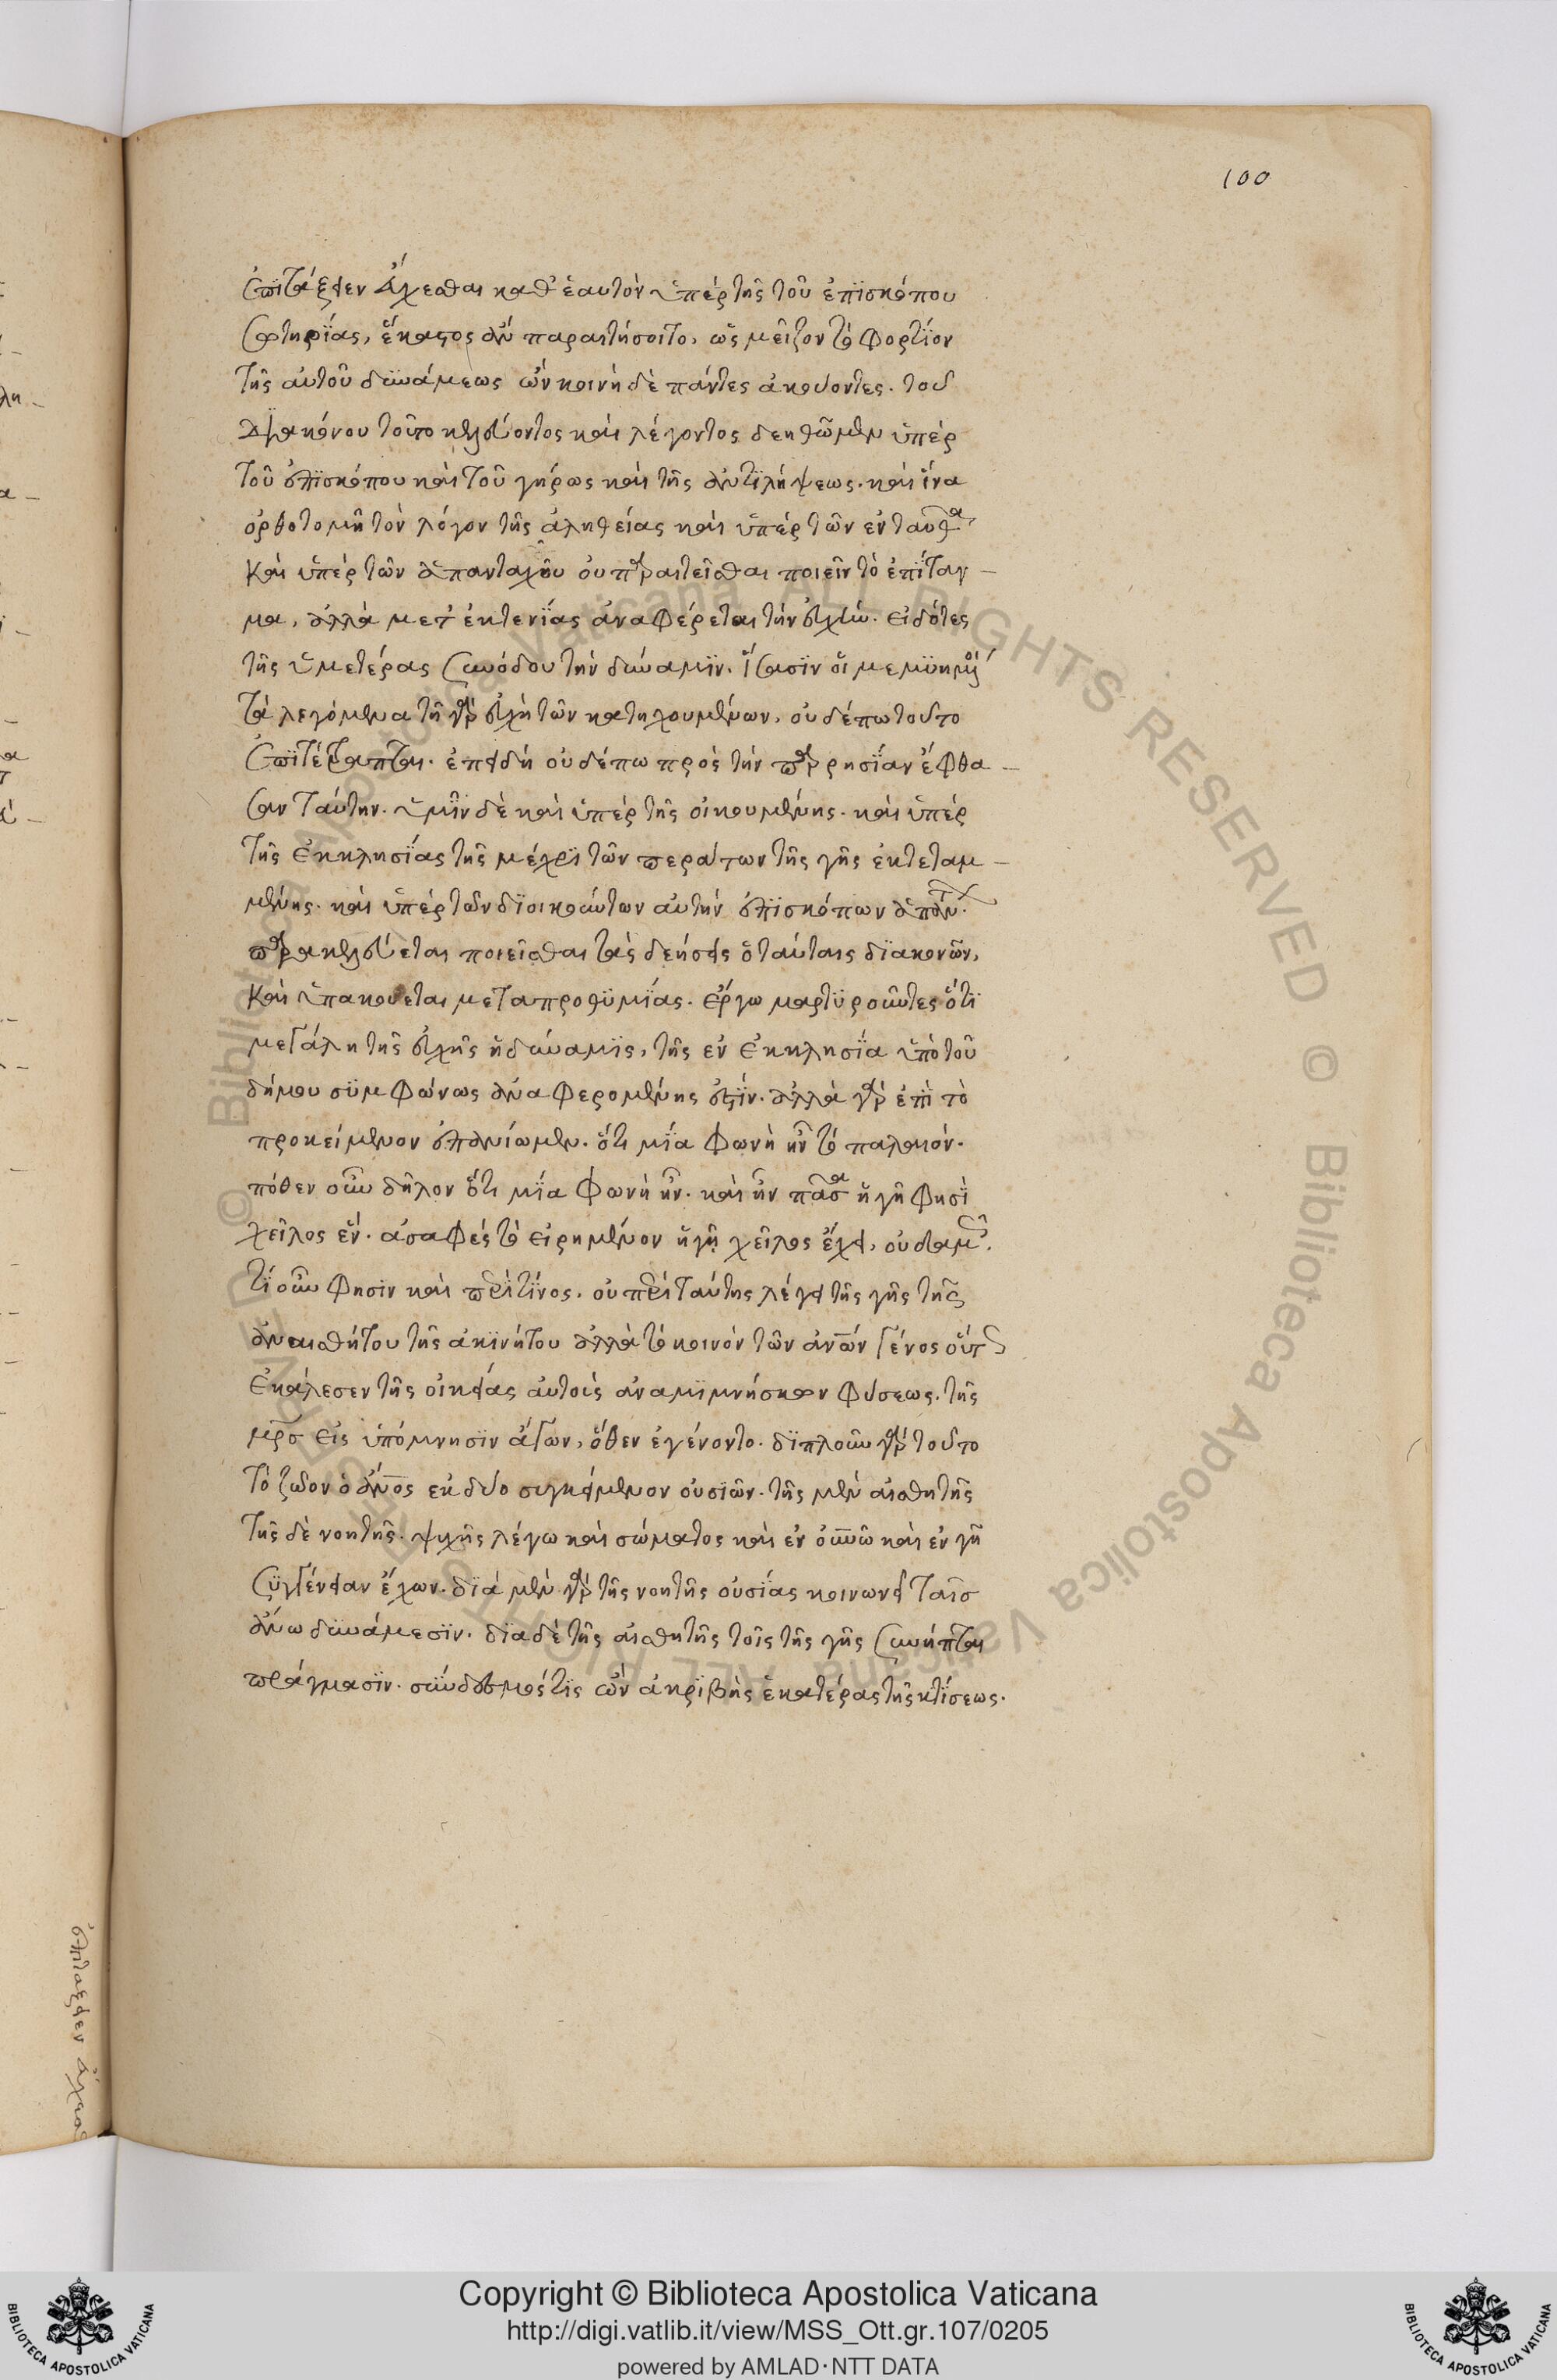 100
ἐπιτάξειεν εὔχεσθαι καθ' ἑαυτὸν ὑπὲρ τῆς τοῦ ἐπϊσκόπου
σωτηρίας, ἕκαστος ἂν παραιτήσοιτο, ὡς μεῖζον τὸ φορτίον
τῆς αὐτοῦ δϋνάμεως ὢν κοινῆ δὲ πάντες ἀκούοντες. τοῦ
διακόνου τοῦτο κελεύοντος καὶ λέγοντος δεηθῶμεν ὑπὲρ
τοῦ ἐπϊσκόπου καὶ τοῦ γήρως καὶ τῆς ἀντϊλήψεως. καὶ ἵνα
ὀρθοτομῆ τὸν λόγον τῆς ἀληθείας καὶ ὑπὲρ τῶν ἐνταῦθα
καὶ ὑπὲρ τῶν ἁπανταχοῦ οὐ παραιτεῖσθαι ποιεῖν τὸ ἐπίταγ-
μα, ἀλλὰ μετ' ἐκτενΐας ἀναφέρεται τὴν εὐχὴν. εἰδότες
τῆς ὑμετέρας συνόδου τὴν δύναμϊν. ἴσασϊν οἱ μεμϋημένοι
τὰ λεγόμενα τῆ γὰρ εὐχῆ τῶν κατηχουμένων, οὐδέπω τοῦτο
ἐπϊτέτραπται. ἐπειδὴ οὐδέπω πρὸς τὴν παρρησΐαν ἔφθα-
σαν ταύτην. ὑμῖν δὲ καὶ ὑπὲρ τῆς οἰκουμένης. καὶ ὑπὲρ
τῆς ἐκκλησΐας τῆς μέχρϊ τῶν περάτων τῆς γῆς ἐκτεταμ-
μένης. καὶ ὑπὲρ τῶν δϊοικούντων αὐτὴν ἐπϊσκόπων
παρακελεύεται ποιεῖσθαι τὰς δεήσεις ὁ ταύταις δϊακονῶν,
καὶ ὑπακούεται μετὰ προθϋμΐας. ἔργω μαρτϋροῦντες ὅτϊ
μεγάλη τῆς εὐχῆς ἡ δύναμϊς, τῆς ἐν ἐκκλησΐα ὑπὸ τοῦ
δήμου σϋμφώνως ἀναφερομένης ἐστΐν. ἀλλὰ γὰρ ἐπὶ τὸ
προκείμενον ἐπανίωμεν. ὅτι μΐα φωνὴ ἦν τὸ παλαιόν.
πόθεν οὖν δῆλον ὅτι μΐα φωνὴ ἦν. καὶ ἦν πᾶσα ἡ γῆ φησὶ
χεῖλος ἕν. ἀσαφὲς τὸ εἰρημένον ἡ γῆ χεῖλος ἔχει, οὐδαμῶς.
τΐ οὖν φησιν καὶ περὶ τΐνος. οὐ περὶ ταύτης λέγει τῆς γῆς τῆς
ἀναισθήτου τῆς ἀκϊνήτου ἀλλὰ τὸ κοινὸν τῶν ἀνων γένος οὕτως
ἐκάλεσεν τῆς οἰκείας αὐτοὺς ἀναμϊμνήσκων φύσεως. τῆς
μρς εἰς ὑπόμνησϊν ἄγων, ὅθεν ἐγένοντο. δϊπλοῦν γὰρ τοῦτο
τὸ ζῶον ὁ ἄνος ἐκ δύο συγκείμενον οὐσϊῶν. τῆς μὲν αἰσθητῆς
τῆς δὲ νοητῆς. ψυχῆς λέγω καὶ σώματος καὶ ἐν οὐνῶ καὶ ἐν γῆ
σϋγγένειαν ἔχων. δϊὰ μὲν γὰρ τῆς νοητῆς οὐσΐας κοινωνεῖ ταῖς
ἄνω δϋνάμεσϊν. δϊὰ δὲ τῆς αἰσθητῆς τοῖς τῆς γῆς συνῆπται
πράγμασϊν. σύνδεσμός τϊς ὢν ἀκρϊβὴς ἑκατέρας τῆς κτΐσεως.
ἐπιταξειεν εὐχεσ
© Biblioteca Apostolica Vaticana ALL RIGHTS RESERVED
Copyright © Biblioteca Apostolica Vaticana
http://digi.vatlib.it/view/MSS_Ott.gr.107/0205
powered by AMLAD·NTT DATA
BIBLIOTECA APOSTOLICA VATICANA
BIBLIOTECA APOSTOLICA VATICANA